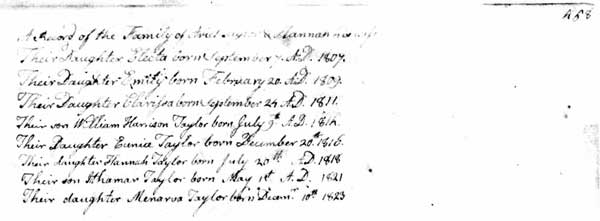 458
A Record of the Family of Ariel Taylor & Hannah his wife
Their Daughter Electa born September 7 A.D. 1807.
Their Daughter Emily born February 20 A.D. 1809.
Their Daughter Clarissa born September 24 A.D. 1811.
Their son William Harrison Taylor born July 9th A.D. 1814.
Their Daughter Eunice Taylor born December 20th 1816.
Their daughter Hannah Taylor born July 20th A.D. 1818
Their son Ithamar Taylor born May 1st A.D. 1821
Their daughter Menarva Taylor born Decemr 10th 1823